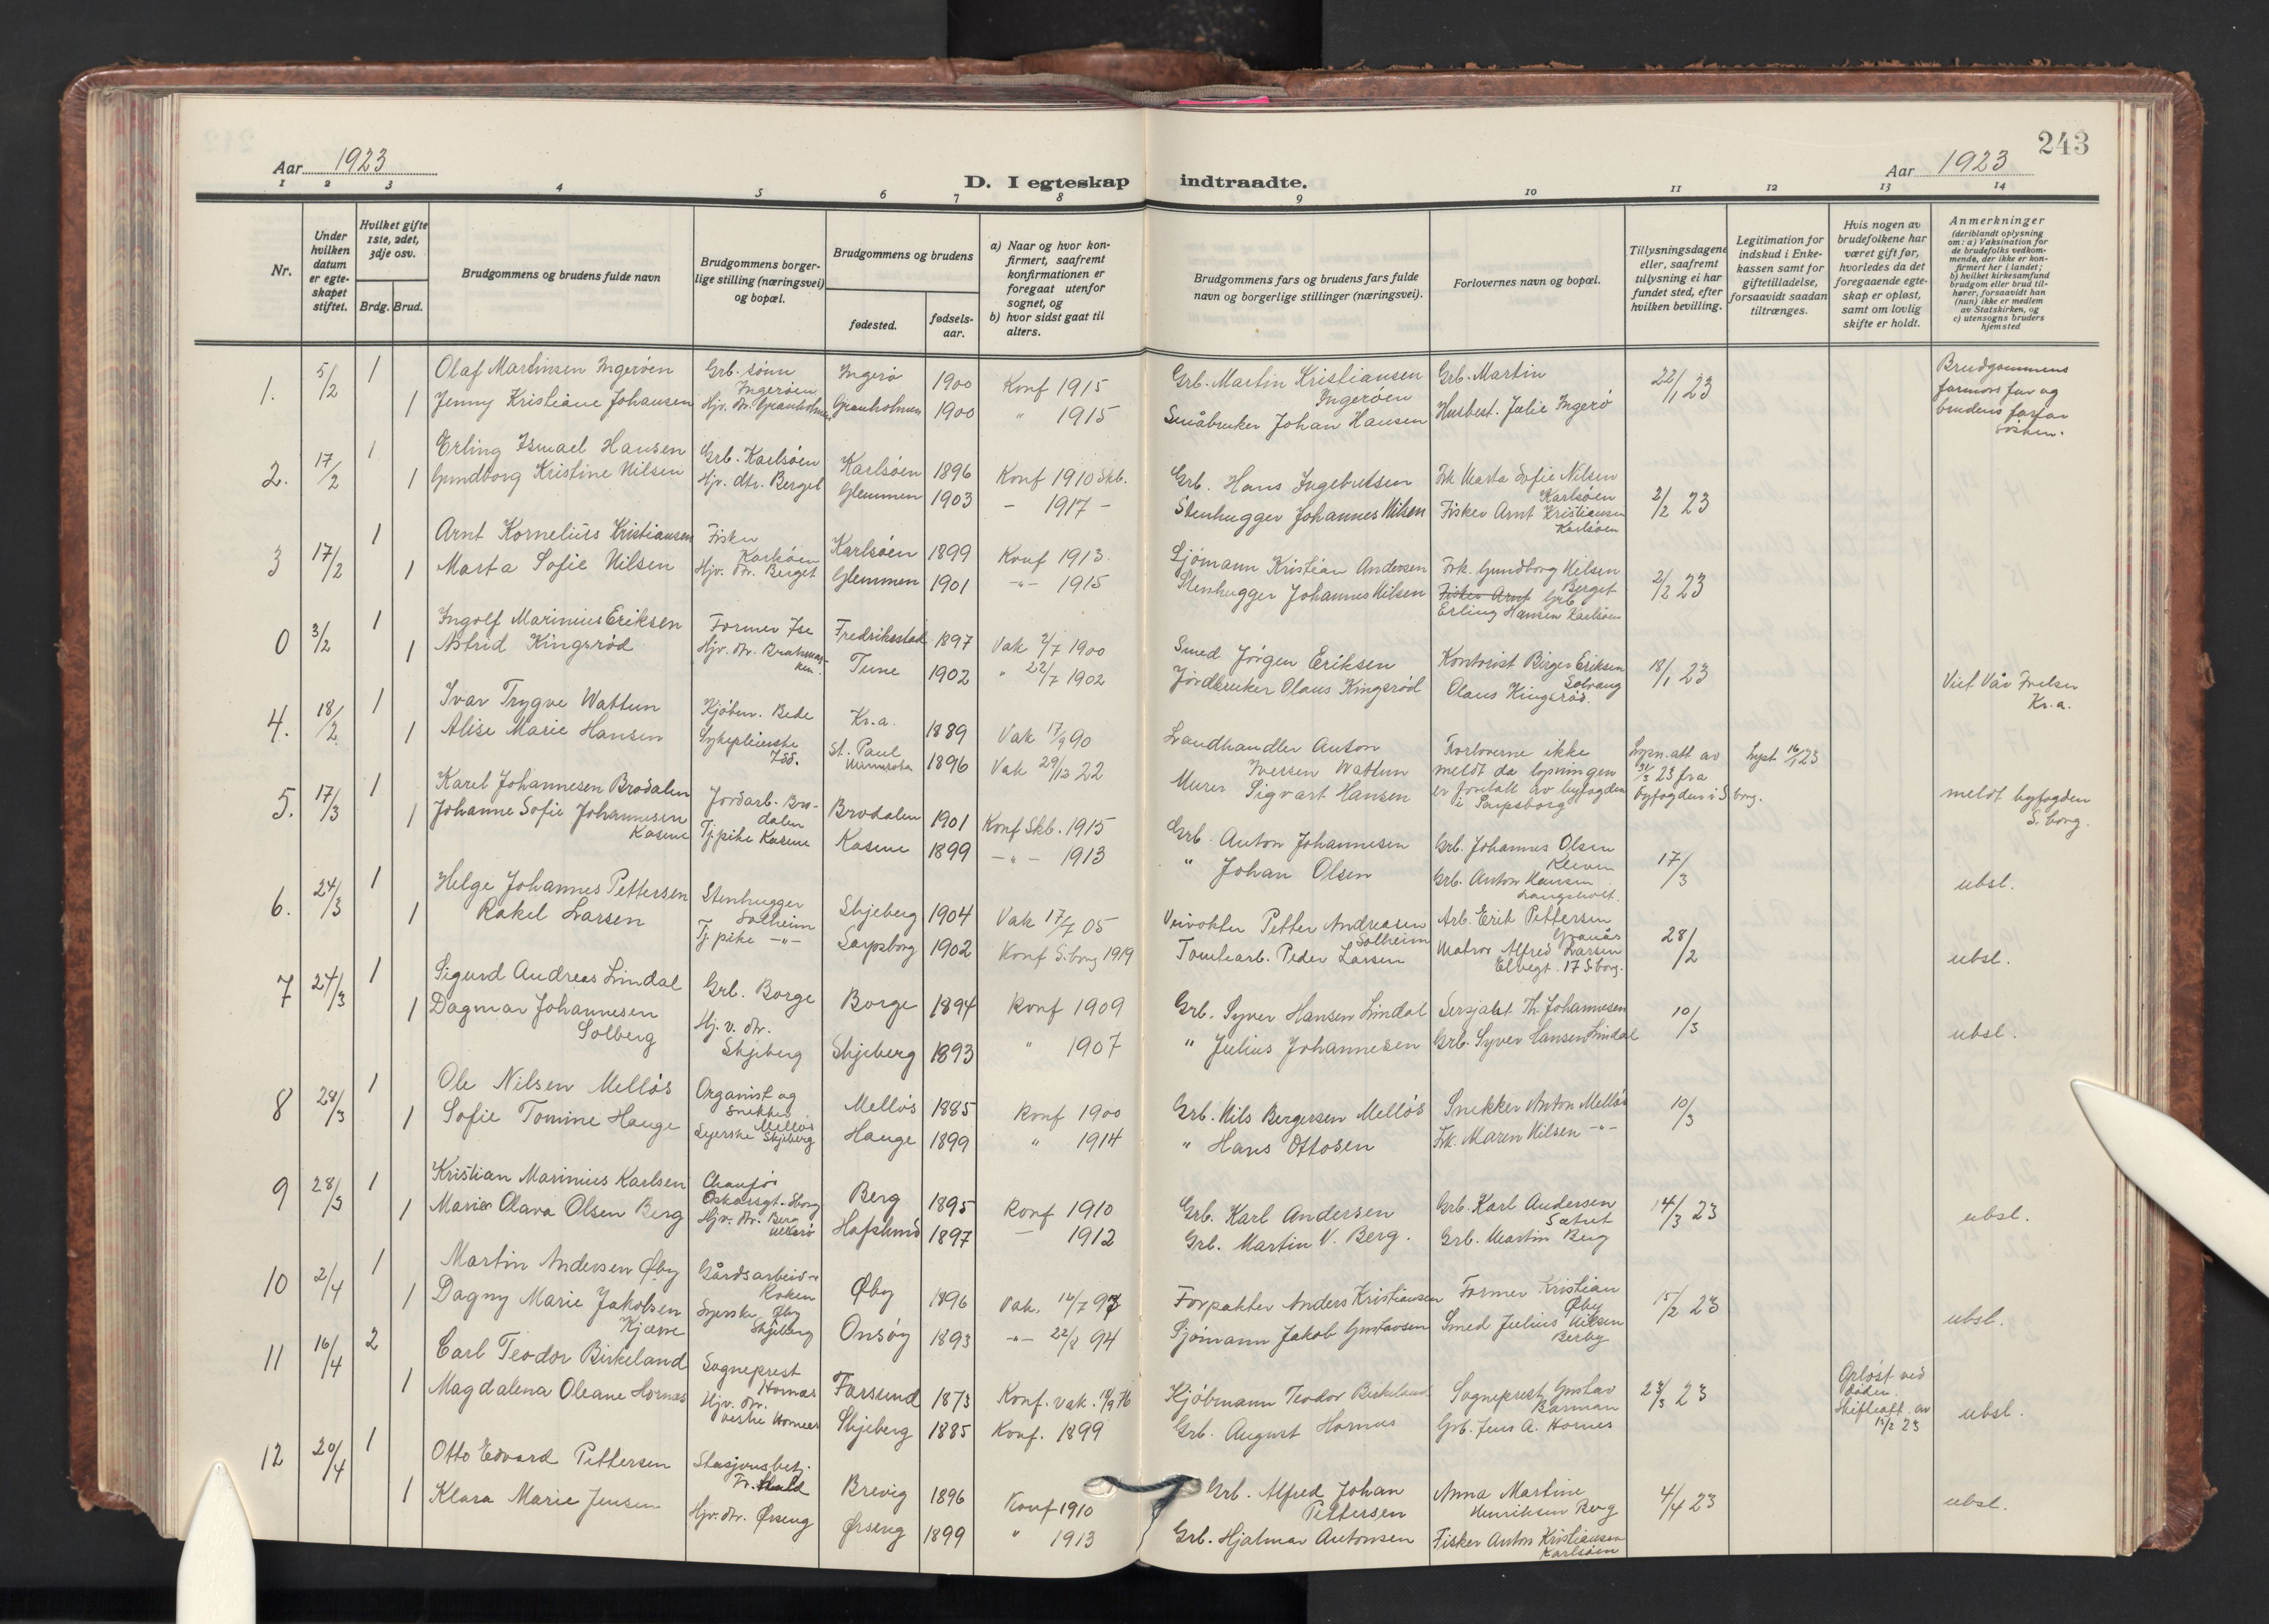 243
Aar 1923
Aar 1923
D. I egteskap indtraadte.
1 2 3 4 5 6 7 8 9 10 11 12 13 14
Nr.
Under hvilken datum er egteskapet stiftet.
Hvilket gifte 1ste, 2det, 3dje osv.
Brdg. Brud.
Brudgommens og brudens fulde navn
Brudgommens borgerlige stilling (næringsvei) og bopæl.
Brudgommens og brudens
fødested.
fødsels-aar.
a) Naar og hvor konfirmert, saafremt konfirmationen er foregaat utenfor sognet, og
b) hvor sidst gaat til alters.
Brudgommens fars og brudens fars fulde navn og borgerlige stillinger (næringsvei).
Forlovernes navn og bopæl.
Tillysningsdagene eller, saafremt tillysning ei har fundet sted, efter hvilken bevilling.
Legitimation for indskud i Enkekassen samt for giftetilladelse, forsaavidt saadan tiltrænges.
Hvis nogen av brudefolkene har været gift før, hvorledes da det foregaaende egteskap er opløst, samt om lovlig skifte er holdt.
Anmerkninger
(deriblandt oplysning om: a) Vaksination for de brudefolks vedkommende, der ikke er konfirmert her i landet; b) hvilket kirkesamfund brudgom eller brud tilhører, forsaavidt han (hun) ikke er medlem av Statskirken, og c) utensogns bruders hjemsted
1. 5/2 1 Olaf Martinsen Ingerøen Grb. sønn Ingerøen Ingerø 1900 Konf 1915 Grb. Martin Kristiansen Ingerøen Grb. Martin 22/1 23 Brudgommens farmors far og brudens farfar
1 Jenny Kristiane Johansen Hjv. dr. Granholmen Granholmen 1900 " 1915 Småbruker Johan Hansen Husbest. Julie Ingerø
2. 17/2 1 Erling Ismael Hansen Grb. Karlsøen Karlsøen 1896 Konf 1910 Skb. Grb. Hans Ingebretsen Frk Marta Sofie Nilsen Karlsøen 2/2 23
1 Gundborg Kristine Nilsen Hjv. dtr. Berget Glemmen 1903 - 1917 - Stenhugger Johannes Nilsen Fisker Arnt Kristiansen Karlsøen
3 17/2 1 Arnt Kornelius Kristiansen Fisker Karlsøen Karlsøen 1899 Konf 1913. Sjømann Kristian Andersen Frk. Gundborg Nilsen Berget 2/2 23
1 Marta Sofie Nilsen Hjv. dr. Berget Glemmen 1901 -"- 1915 Stenhugger Johannes Nilsen Fisker Arnt Grb. Erling Hansen Karlsøen
0 3/2 1 Ingolf Marinius Eriksen Former Ise Fredriksstad 1897 Vak 2/7 1900 Smed Jørgen Eriksen Kontorist Birger Eriksen Solvang 18/1 23
1 Astrid Kingsrød Hjv. dr. Tune 1902 " 22/7 1902 Jordbruker Olaus Kingsrød Olaus Kingsrød.
Kr.a.
4. 18/2 1 Ivar Trygve Wattum Kjøbm. Bede Kr.a. 1889 Vak 17/9 90 Landhandler Anton Iversen Wattum Forloverne ikke meldt da lysningen er foretatt av byfogden i Sarpsborg Lysn.att av 31/3 23 fra byfogden i S.borg. Lyst 16/1 23
1 Alise Marie Hansen Sykepleierske St. Paul Minnesota 1896 Vak 29/12 22 Murer Sigvart Hansen meldt byfogden S.borg.
5. 17/3 1 Karel Johannesen Brødalen Jordarb. Brodalen Brodalen 1901 Konf Skb. 1915 Grb. Anton Johannesen Grb. Johannes Olsen Kleven 17/3 ubsl.
1 Johanne Sofie Johannesen Kasene Tj.pike Kasene Kasene 1899 -"- 1913 " Johan Olsen Grb. Anton Hansen Langsholt.
6. 24/3 1 Helge Johannes Pettersen Stenhugger Solheim Skjeberg 1904 Vak 17/7 05 Veivokter Petter Andreasen Solheim Arb. Erik Pettersen Granås 28/2 ubsl.
1 Rakel Larsen Tj.pike -"- Sarpsborg 1902 Konf S.borg 1919 Tomtearb. Peder Larsen Matros Alfred Larsen Elvegt. 17 S.borg.
7 24/3 1 Sigurd Andreas Lindal Grb. Borge Borge 1894 Konf 1909 Grb. Syver Hansen Lindal Sersjant Th. Johannesen 10/3 ubsl.
1 Dagmar Johannesen Solberg Hj.v. dr. Skjeberg Skjeberg 1893 " 1907 " Julius Johannesen Grb. Syver Hansen Lindal
8 28/3 1 Ole Nilsen Melløs Organist og snekker Melløs Melløs 1885 Konf 1900 Grb. Nils Bergersen Melløs Snekker Anton Melløs 10/3
1 Sofie Tomine Hauge Syerske Skjeberg Hauge 1899 " 1914 " Hans Ottosen Frk. Maren Nilsen -"-
9 28/3 1 Kristian Marinius Karlsen Chaufør Oskarsgt. Sborg Berg 1895 Konf 1910 Grb. Karl Andersen Grb. Karl Andersen Sætret 14/3 23 ubsl.
1 Marie Olava Olsen Berg Hjv. dr. Berg Hafslund 1897 — 1912 Grb. Martin V. Berg. Grb. Martin Berg
10 2/4 1 Martin Andersen Øby Gårdsarbeider Øby 1896 Vak. 16/7 97 Forpakter Anders Kristiansen Former Kristian Øby 15/2 23 ubsl.
1 Dagny Marie Jakobsen Kjærre Syerske Øby Skjeberg Onsøy 1893 -"- 22/8 94 Sjømann Jakob Gustavsen Smed Julius Nilsen Berby
11 16/4 2 Carl Teodor Birkeland Sogneprest Hornæs Farsund 1873 Konf. vak. Kjøbmann Teodor Birkeland Sogneprest Gustav Barman 23/3 23 Opløst ved døden. Skifteatt. av 15/2 23 ubsl.
1 Magdalena Oleane Hornæs Hjv. dr. vestre Hornæs Skjeberg 1885 Konf. 1899 Grb. August Hornes Grb. Jens A. Hornes
12 20/4 1 Otto Edvard Pettersen Stasjonsbetj. Fr.hald Brevig 1896 Konf 1910 Grb. Alfred Johan Pettersen Anna Martine Henriksen Berg 4/4 23 ubsl.
1 Klara Marie Jensen Hjv. dtr. Ørseng Ørseng 1899 " 1913 Grb. Hjalmar Antonsen Fisker Anton Kristiansen Karlsøen